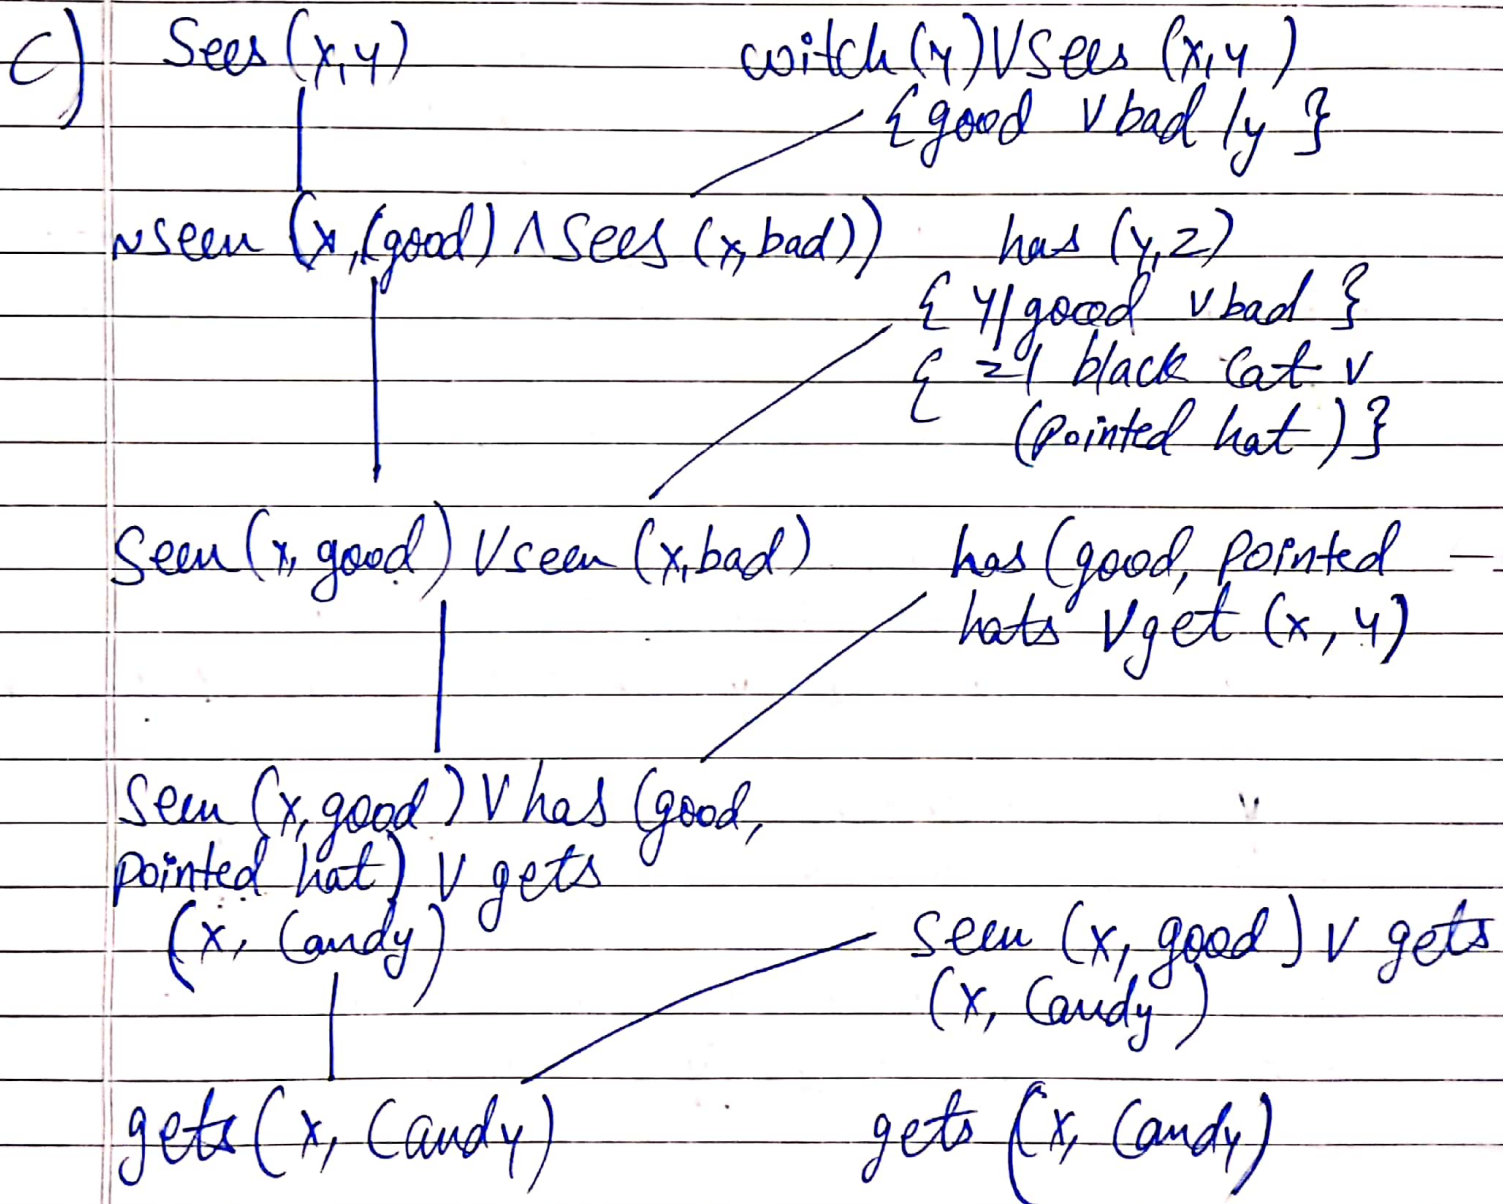 C) Sees (x,y) witch (y) V Sees (x,y)
{good v bad /y }
~seen (x,(good) ∧ Sees (x,bad)) has (y,z)
{ y/good v bad }
{ z/ black Cat v
(pointed hat) }
Seen (x, good) V seen (x,bad) has (good, pointed -
hats V get (x, y)
Seen (x, good) V has (good,
pointed hat) V gets
(x, Candy) seen (x, good) V gets
(x, Candy)
gets (x, Candy) gets (x, Candy)